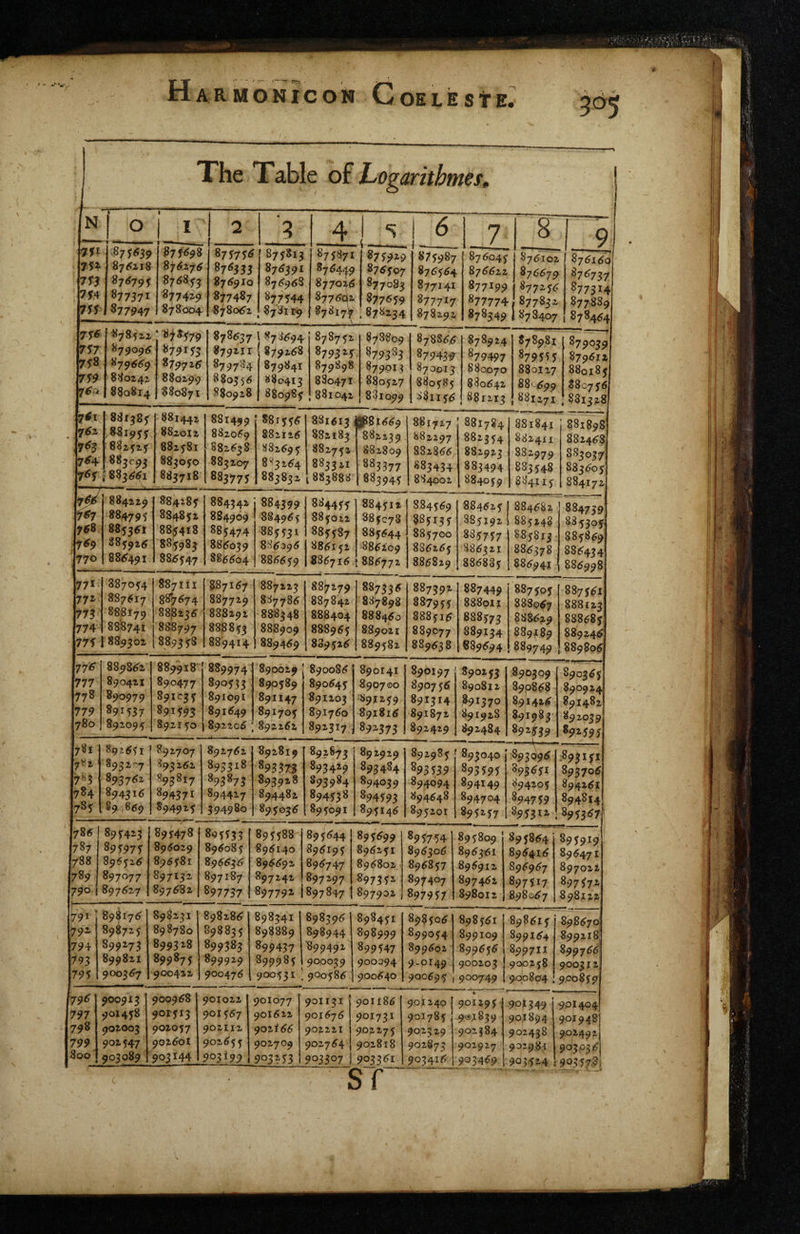 HARMONICON COELESTE. 305
The Table of Logarithmes.
N 0 1 2 3 4 5 6 7 8 9
751 875639 875698 875756 875813 875871 875929 875987 876045 876102 876160
752 876218 876276 876333 876391 876449 876507 876564 876622 876679 876737
753 876795 876853 876910 876968 877026 877083 877141 877199 877256 877314
754 877371 877429 877487 877544 877602 877659 877717 877774 877832 877889
755 877947 878004 878062 878119 878177 878234 878292 878349 878407 878464
756 878522 878579 878637 878694 878752 878809 878866 878924 878981 879039
757 879096 879153 879211 879268 879325 879383 879439 879497 879555 879612
758 879669 879726 879784 879841 879898 879013 870013 880070 880127 880185
759 880242 880299 880356 880413 880471 880527 880585 880642 880699 880756
760 880814 880871 880928 880985 881042 881099 881156 881213 881271 881328
761 881385 881442 881499 881556 881613 881669 881727 881784 881841 881898
762 881955 882012 882069 882126 882183 882239 882297 882354 882411 882468
763 882525 882581 882638 882695 882752 882809 882866 882923 882979 883037
764 883093 883050 883207 883264 883321 883377 883434 883494 883548 883605
765 883661 883718 883775 883832 883888 883945 884002 884059 884115 884172
766 884229 884285 884342 884399 884455 884512 884569 884625 884682 884739
767 884795 884852 884909 884965 885022 885078 885135 885192 885248 885305
768 885361 885418 885474 885531 885587 885644 885700 885757 885813 885869
769 885926 885983 886039 886096 886152 886209 886265 886321 886378 886434
770 886491 886547 886604 886659 886716 886772 886829 886885 886941 886998
771 887054 887111 887167 887223 887279 887336 887392 887449 887505 887561
772 887617 887674 887729 887786 887842 887898 887955 888011 888067 888123
773 888179 888236 888292 888348 888404 888460 888516 888573 888629 888685
774 888741 888797 888853 888909 888965 889021 889077 889134 889189 889246
775 889302 889358 889414 889469 889526 889582 889638 889694 889749 889806
776 889862 889918 889974 890029 890086 890141 890197 890253 890309 890365
777 890421 890477 890533 890589 890645 890700 890756 890812 890868 890924
778 890979 891035 891091 891147 891203 891259 891314 891370 891426 891482
779 891537 891593 891649 891705 891760 891816 891872 891928 891983 892039
780 892095 892150 892206 892262 892317 892373 892429 892484 892539 892595
781 892651 892707 892762 892819 892873 892929 892985 893040 893096 893151
782 893207 893262 893318 893373 893429 893484 893539 893595 893651 893706
783 893762 893817 893873 893928 893984 894039 894094 894149 894205 894261
784 894316 894371 894427 894482 894538 894593 894648 894704 894759 894814
785 89 869 894925 394980 895036 895091 895146 895201 895257 895312 895367
786 895423 895478 895533 895588 895644 895699 895754 895809 895864 895919
787 895975 896029 896085 896140 896195 896251 896306 896361 896416 896471
788 896526 896581 896636 896692 896747 896802 896857 896912 896967 897022
789 897077 897132 897187 897242 897297 897352 897407 897462 897517 897572
790 897627 897682 897737 897792 897847 897902 897957 898012 898067 898122
791 898176 898231 898286 898341 898396 898451 898506 898561 898615 898670
792 898725 898780 898835 898889 898944 898999 899054 899109 899164 899218
794 899273 899328 899383 899437 899492 899547 899602 899656 899711 899766
793 899821 899875 899929 899985 900039 900094 9.0149 900203 900258 900312
795 900367 900422 900476 900531 900586 900640 900695 900749 900804 900859
796 900913 900968 901022 901077 901131 901186 901240 901295 901349 901404
797 901458 901513 901567 901622 901676 901731 901785 901839 901894 901948
798 902003 902057 902112 902166 902221 902275 902329 902384 902438 902492
799 902547 902601 902655 902709 902764 902818 902873 902927 902981 903036
800 903089 903144 903199 903253 903307 903361 903416 903469 903524 903578
Sf